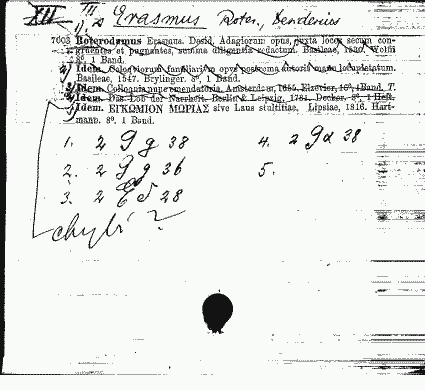 XII III
1), 2 Erasmus Roter., Desiderius
7603 Roterodamus Erasmus. Desid. Adagiorum opus, juxta locos secum con-
gruentes et pugnantes, summa diligentia redactum. Basileae, 1530. 
8°. 1 Band.
2) Idem. Colloquiorum familiarium opus postrema autoris manu locupletatum.
Basileae, 1547. Brylinger. 8°, 1 Band.
3) Idem. Colloquia nunc emendatoria. Amsterdam, 1655. Elzevier, 16°, 1 Band.
4) Idem. Das Lob der Narrheit. Berlin & Leipzig, 1781. Decker. 8°. 1 Heft.
5) Idem. ΕΓΚΩΜΙΟΝ ΜΩΡΙΑΣ sive Laus stultitiae, Lipsiae, 1816. Hart-
mann. 8°. 1 Band.
1. 2 G g 38 4. 2 G d 38
2. 2 G g 36 5.
3. 2 E d 28
chybí ?